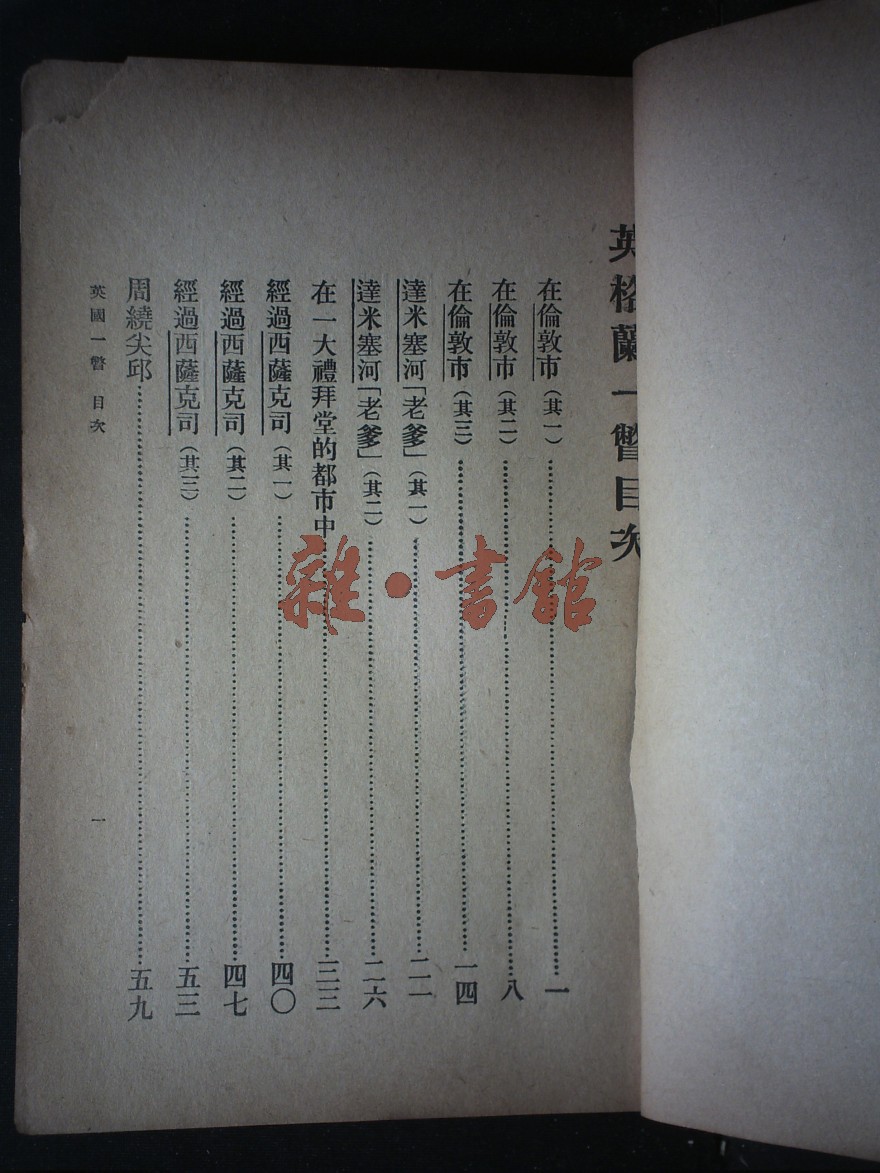 英格蘭一瞥目次
在倫敦市(其一)……一
在倫敦市(其二)……八
在倫敦市(其三)……一四
達米塞河「老爹」(其一)……二一
達米塞河「老爹」(其二)……二六
在一大禮拜堂的都市中……三三
經過西薩克司(其一)……四〇
經過西薩克司(其二)……四七
經過西薩克司(其三)……五三
周繞尖邱……五九
英國一瞥 目次 一
雜·書館